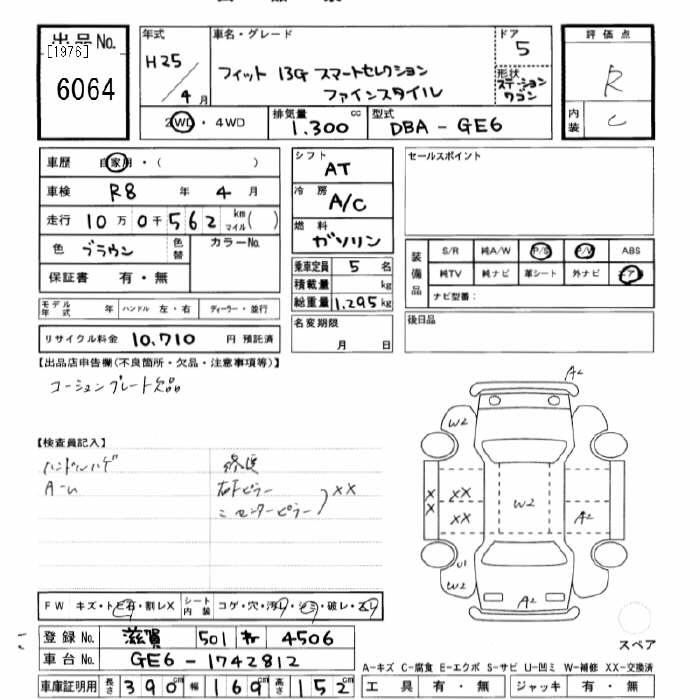 出品No.
[1976]
6064
年式
H25/4月
車名・グレード
フィット 13G スマートセレクション
ファインスタイル
ドア
5
形状
ステーション
ワゴン
評価点
R
内装
C
2WD・4WD
排気量
1.300 cc
型式
DBA-GE6
車歴 自家用・( )
車検 R8 年 4 月
走行 10万0千562 km マイル( )
色 ブラウン 色替 カラーNo.
保証書 有・無
モデル年式 年 ハンドル 左・右 ディーラー・並行
リサイクル料金 10,710 円 預託済
シフト
AT
冷房
A/C
燃料
ガソリン
乗車定員 5 名
積載量 kg
総重量 1,295 kg
名変期限
月 日
セールスポイント
装備品
S/R 純A/W P/S P/W ABS
純TV 純ナビ 革シート 外ナビ エアB
ナビ型番:
後日品
【出品店申告欄(不良箇所・欠品・注意事項等)】
コーションプレート欠品
【検査員記入】
ハンドルハゲ
A-U
修復
右Fピラー
ミ センターピラー
XX
A2
W2
X
X
XX
XX
W2
A2
U1
W2
A2
スペア
FW キズ・トビ石・割レX
シート内装 コゲ・穴・汚レ・シミ・破レ・スレ
登録No. 滋賀 501 4506
車台No. GE6-1742812
車庫証明用 長さ 390cm 幅 169cm 高さ 152cm
A-キズ C-腐食 E-エクボ S-サビ U-凹ミ W-補修 XX-交換済
工具 有・無 ジャッキ 有・無